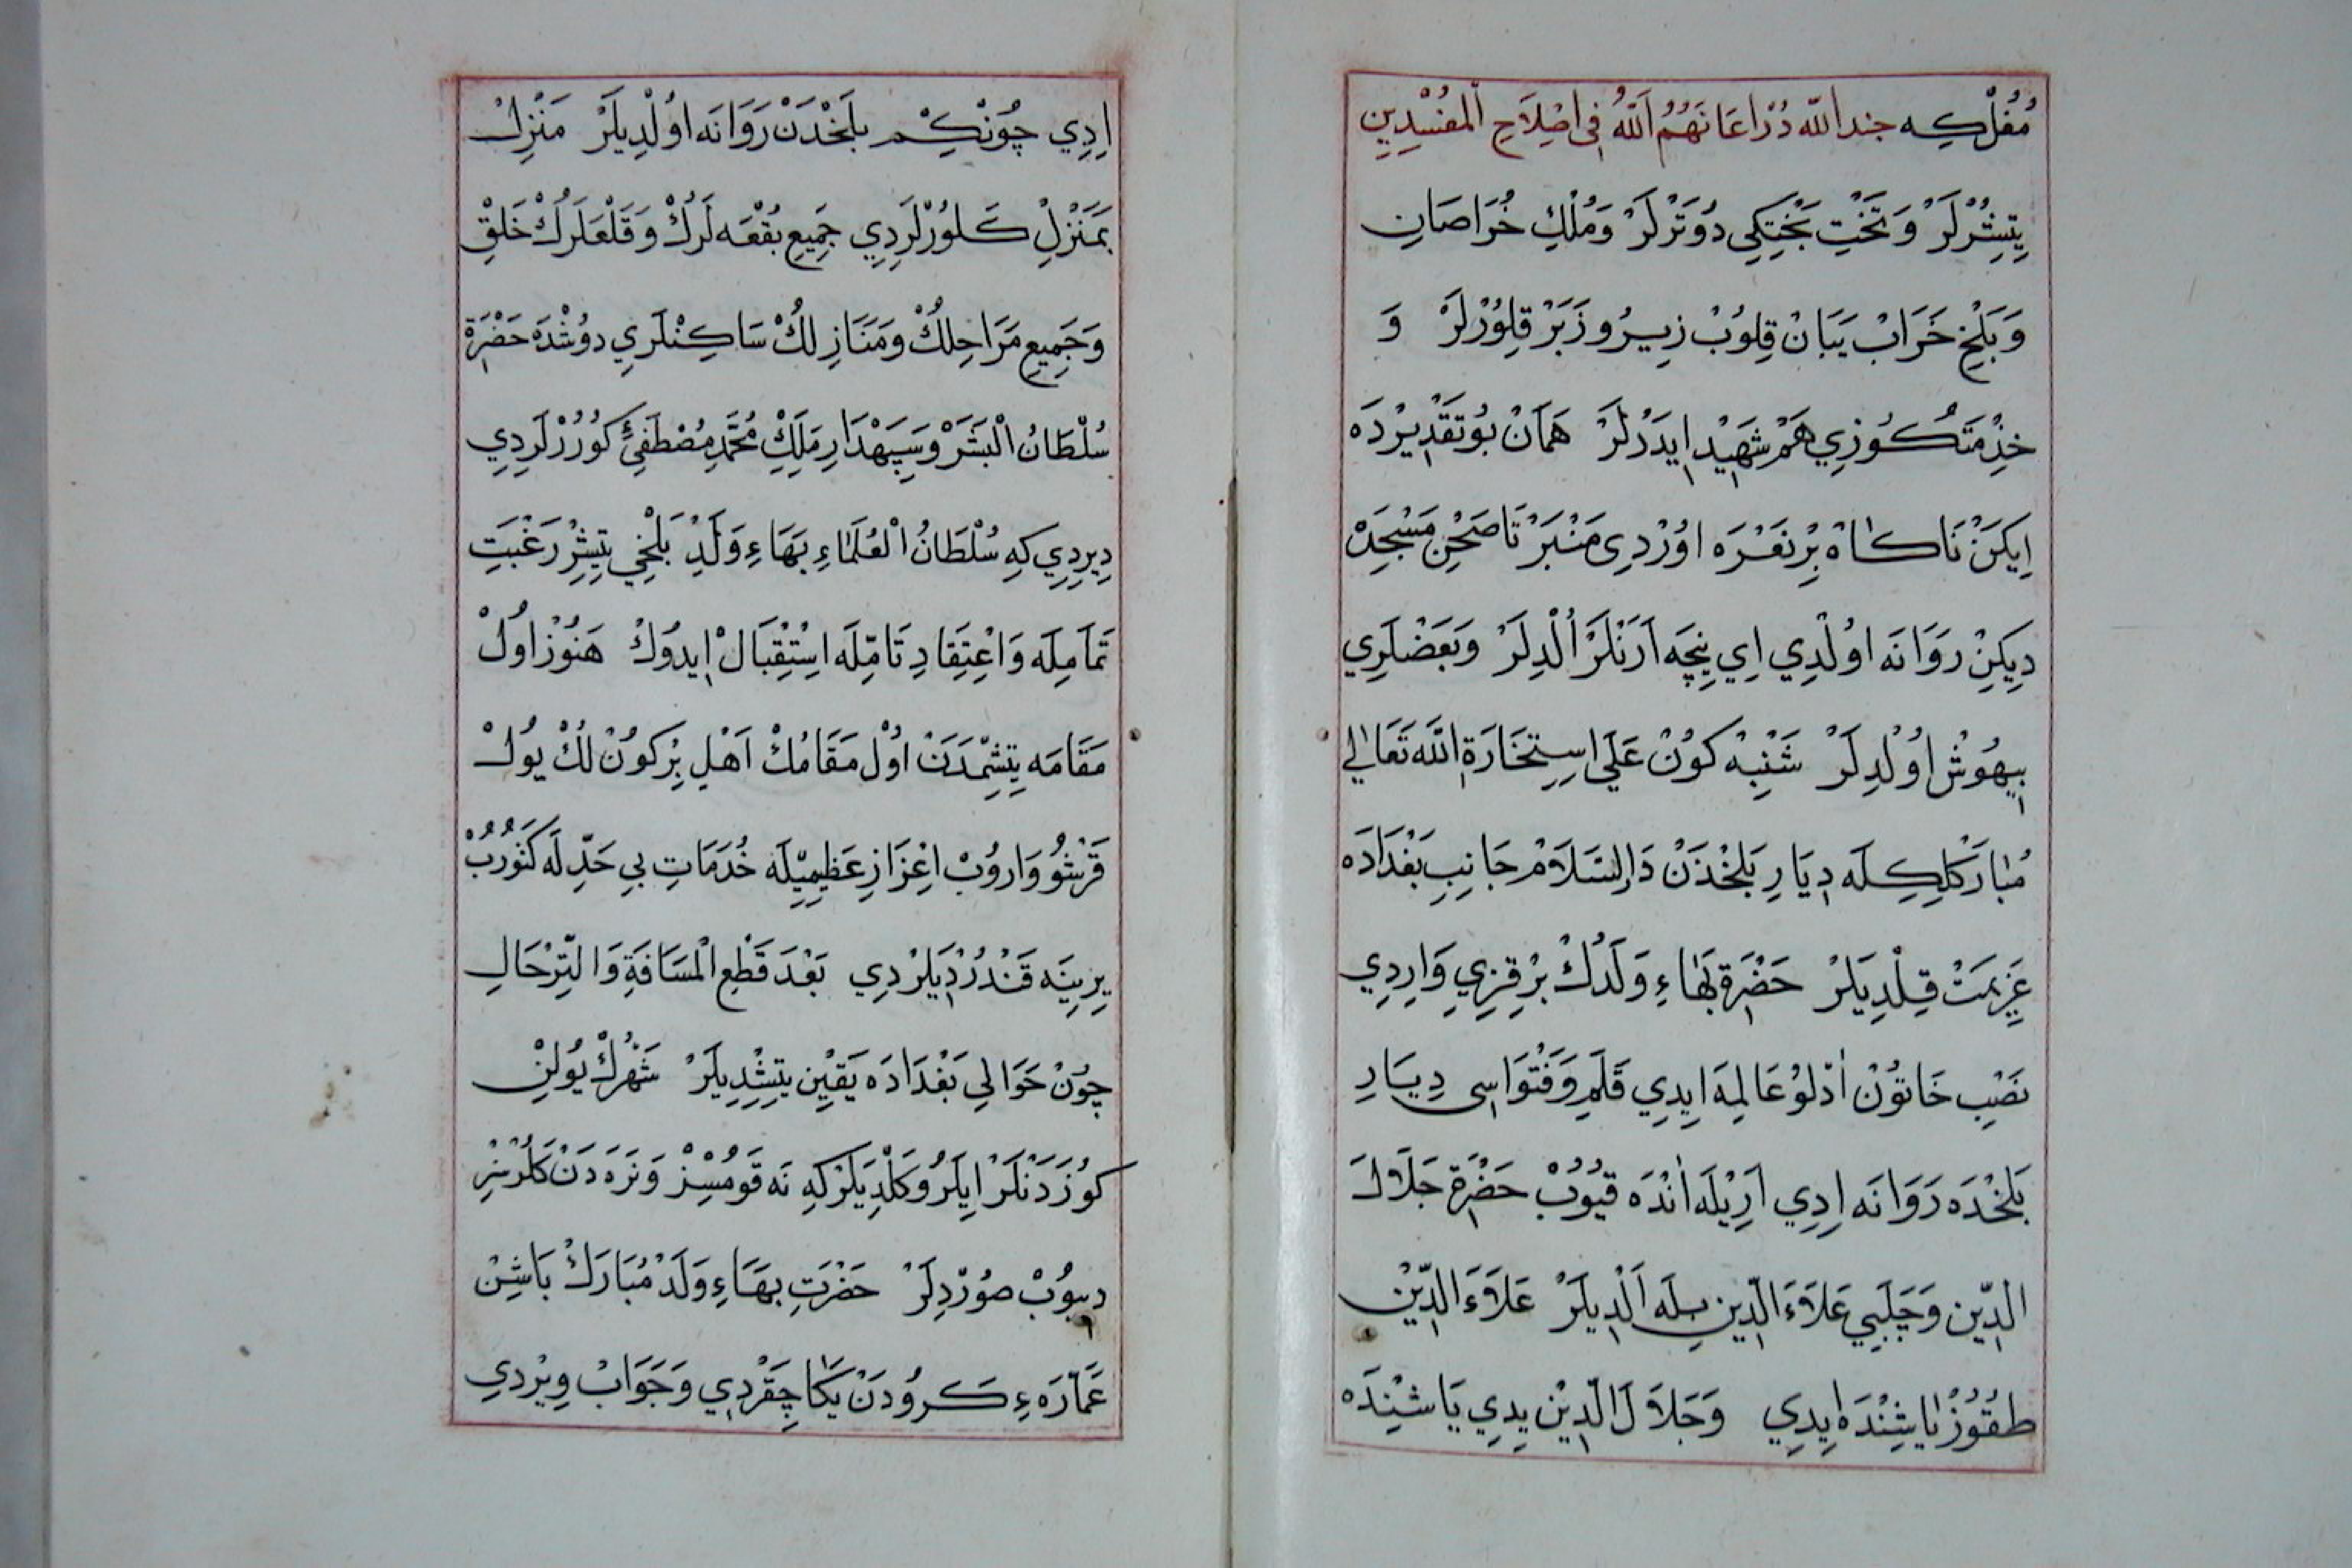 مُغُلْ كِه جند اللّه دُرْ اَعَانَهُمُ اللّٰهُ فِي اِصْلَاحِ الْمُفْسِدِينِ
يِتِشِرْلَرْ وَتَخْتِ بَخْتِكِي دُوتَرْلَرْ وَمُلْكِ خُرَاصَانِ
وَبَلْخِ خَرَابْ يَبَانْ قِلُوبْ زِيرُو زَبَرْ قِلُورْلَرْ وَ
خِذْمَتَكُوزِي هَمْ شَهِيْد اِيدَرْلَرْ هَمَانْ بُو تَقْدِيرْدَه
اِيكَنْ نَاكَاهْ بِرْ نَعْرَه اوُرْدِي مَنْبَرْ تَا صَحْنِ مَسْجِدَنْ
دِيكِنْ رَوَانَه اوُلْدِي اِي نِيچَه اَرَنْلَرْ اُلْدِلَرْ وَبَعَضْلَرِي
بِيهُوشْ اوُلْدِلَرْ شَنْبِه كُونْ عَلَي اسِتِخَارَةِ اللّٰه تَعَالٰي
مُبَارَكْلِكِلَه دِيَارِ بَلْخْدَنْ دَارِالسَّلَامْ جَانِبِ بَغْدَادَه
عَزِيمَتْ قِلْدِيلَرْ حَضْرَةِ بَهَاءِ وَلَدُكْ بِرْ قِزِي وَارِدِي
نَصِْبِ خَاتُونْ اَدْلوُ عَالِمَه ايدِي قَلَمِ وَفَتْوَاسِي دِيَارِ
بَلْخْدَه رَوَانَه اِدِي اَرِيْلَه اَنْدَه قِيُوبْ حَضْرَةِ جَلَالَ
الدِّين وَچَلَبِي عَلَاءَ الدِّينِ بِلَه اَلْدِيلَرْ عَلَاءَ الدِّيْن
طقُوُزْ يَاشِنْدَه اِيدِي وَجَلَالَ الدِّيْن يِدِي يَاشِنْدَه
اِدِي چُونْكِمْ بَلْخْدَنْ رَوَانَه اوُلْدِيلَرْ مَنْزِلْ
بَمَنْزِلْ كَلوُرْلَرِدِي جَمِيعِ بُقْعَه لَرُكْ وَقَلْعَلَرُكْ خَلْقِ
وَجَمِيعِ مَرَاحِلُكْ وَمَنَازِلُكْ سَاكِنْلَرِي دوُشْدَه حَضْرَةِ
سُلْطَانُ الْبَشَرْ وَسِپَهْدَارِ مَلَكِ مُحَمَّدِ مُصْطَفِيَُّ كوُرُرْلَرِدِي
دِيرِدِي كِه سُلْطَانُ الْعُلَمَاءِ بَهَاءِ وَلَدِ بَلْخِي يِتِشِرْ رَغْبَتِ
تَمَامِلَه وَاعْتِقَادِ تَامِّلَه اسِْتِقْبَالْ اِيدُوكْ هَنُوزْ اوُلْ
مَقَامَه يِتِشْمَدَنْ اوُلْ مَقَامُكْ اَهْلِ بِرْ كوُنْ لُكْ يوُلْ
قَرْشُو وَاروُبْ اِعْزَازِ عَظِيمِيْلَه خُدَمَاتِ بِي حَدِّلَه كَتوُرُبْ
يِرِينَه قَنْدُرُرْدِيلَرْدِي بَعْدَ قَطْعِ الْمَسَافَةِ وَالتِّرْحَالِ
چوُنْ حَوَالِي بَغْدَادَه يَقِيْن يِتِشْدِيلَرْ شَهْرُكْ يوُلِنْ
كوُزَدَنْلَرْ اِيلَرُو كَلْدِيلَرْ كِه نَه قَوْمُسِزْ وَنَرَه دَنْ كَلُرْسِزْ
ديوُبْ صوُرْدِلَرْ حَضْرَتِ بَهَاءِ وَلَدْ مُبَارَكْ بَاشِنْ
عَمَّارَهءِ كَروُدَنْ يَكَا چِقَرْدِي وَجَوَابْ وِيْردِي